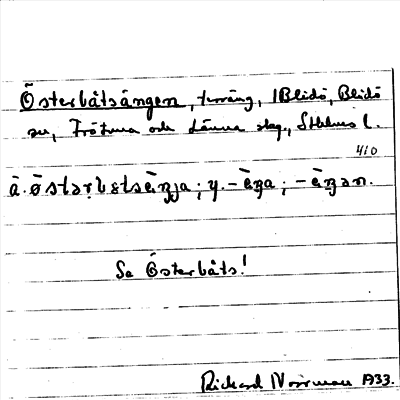 Österbåtsängen, terräng, 1 Blidö, Blidö
sn, Frötuna och Länna skg., Sthlms l.
410
å. ø̄starbåtsèŋja; y. -èŋa; -èŋən.
Se Österbåts!
Rickard Norrman 1933.